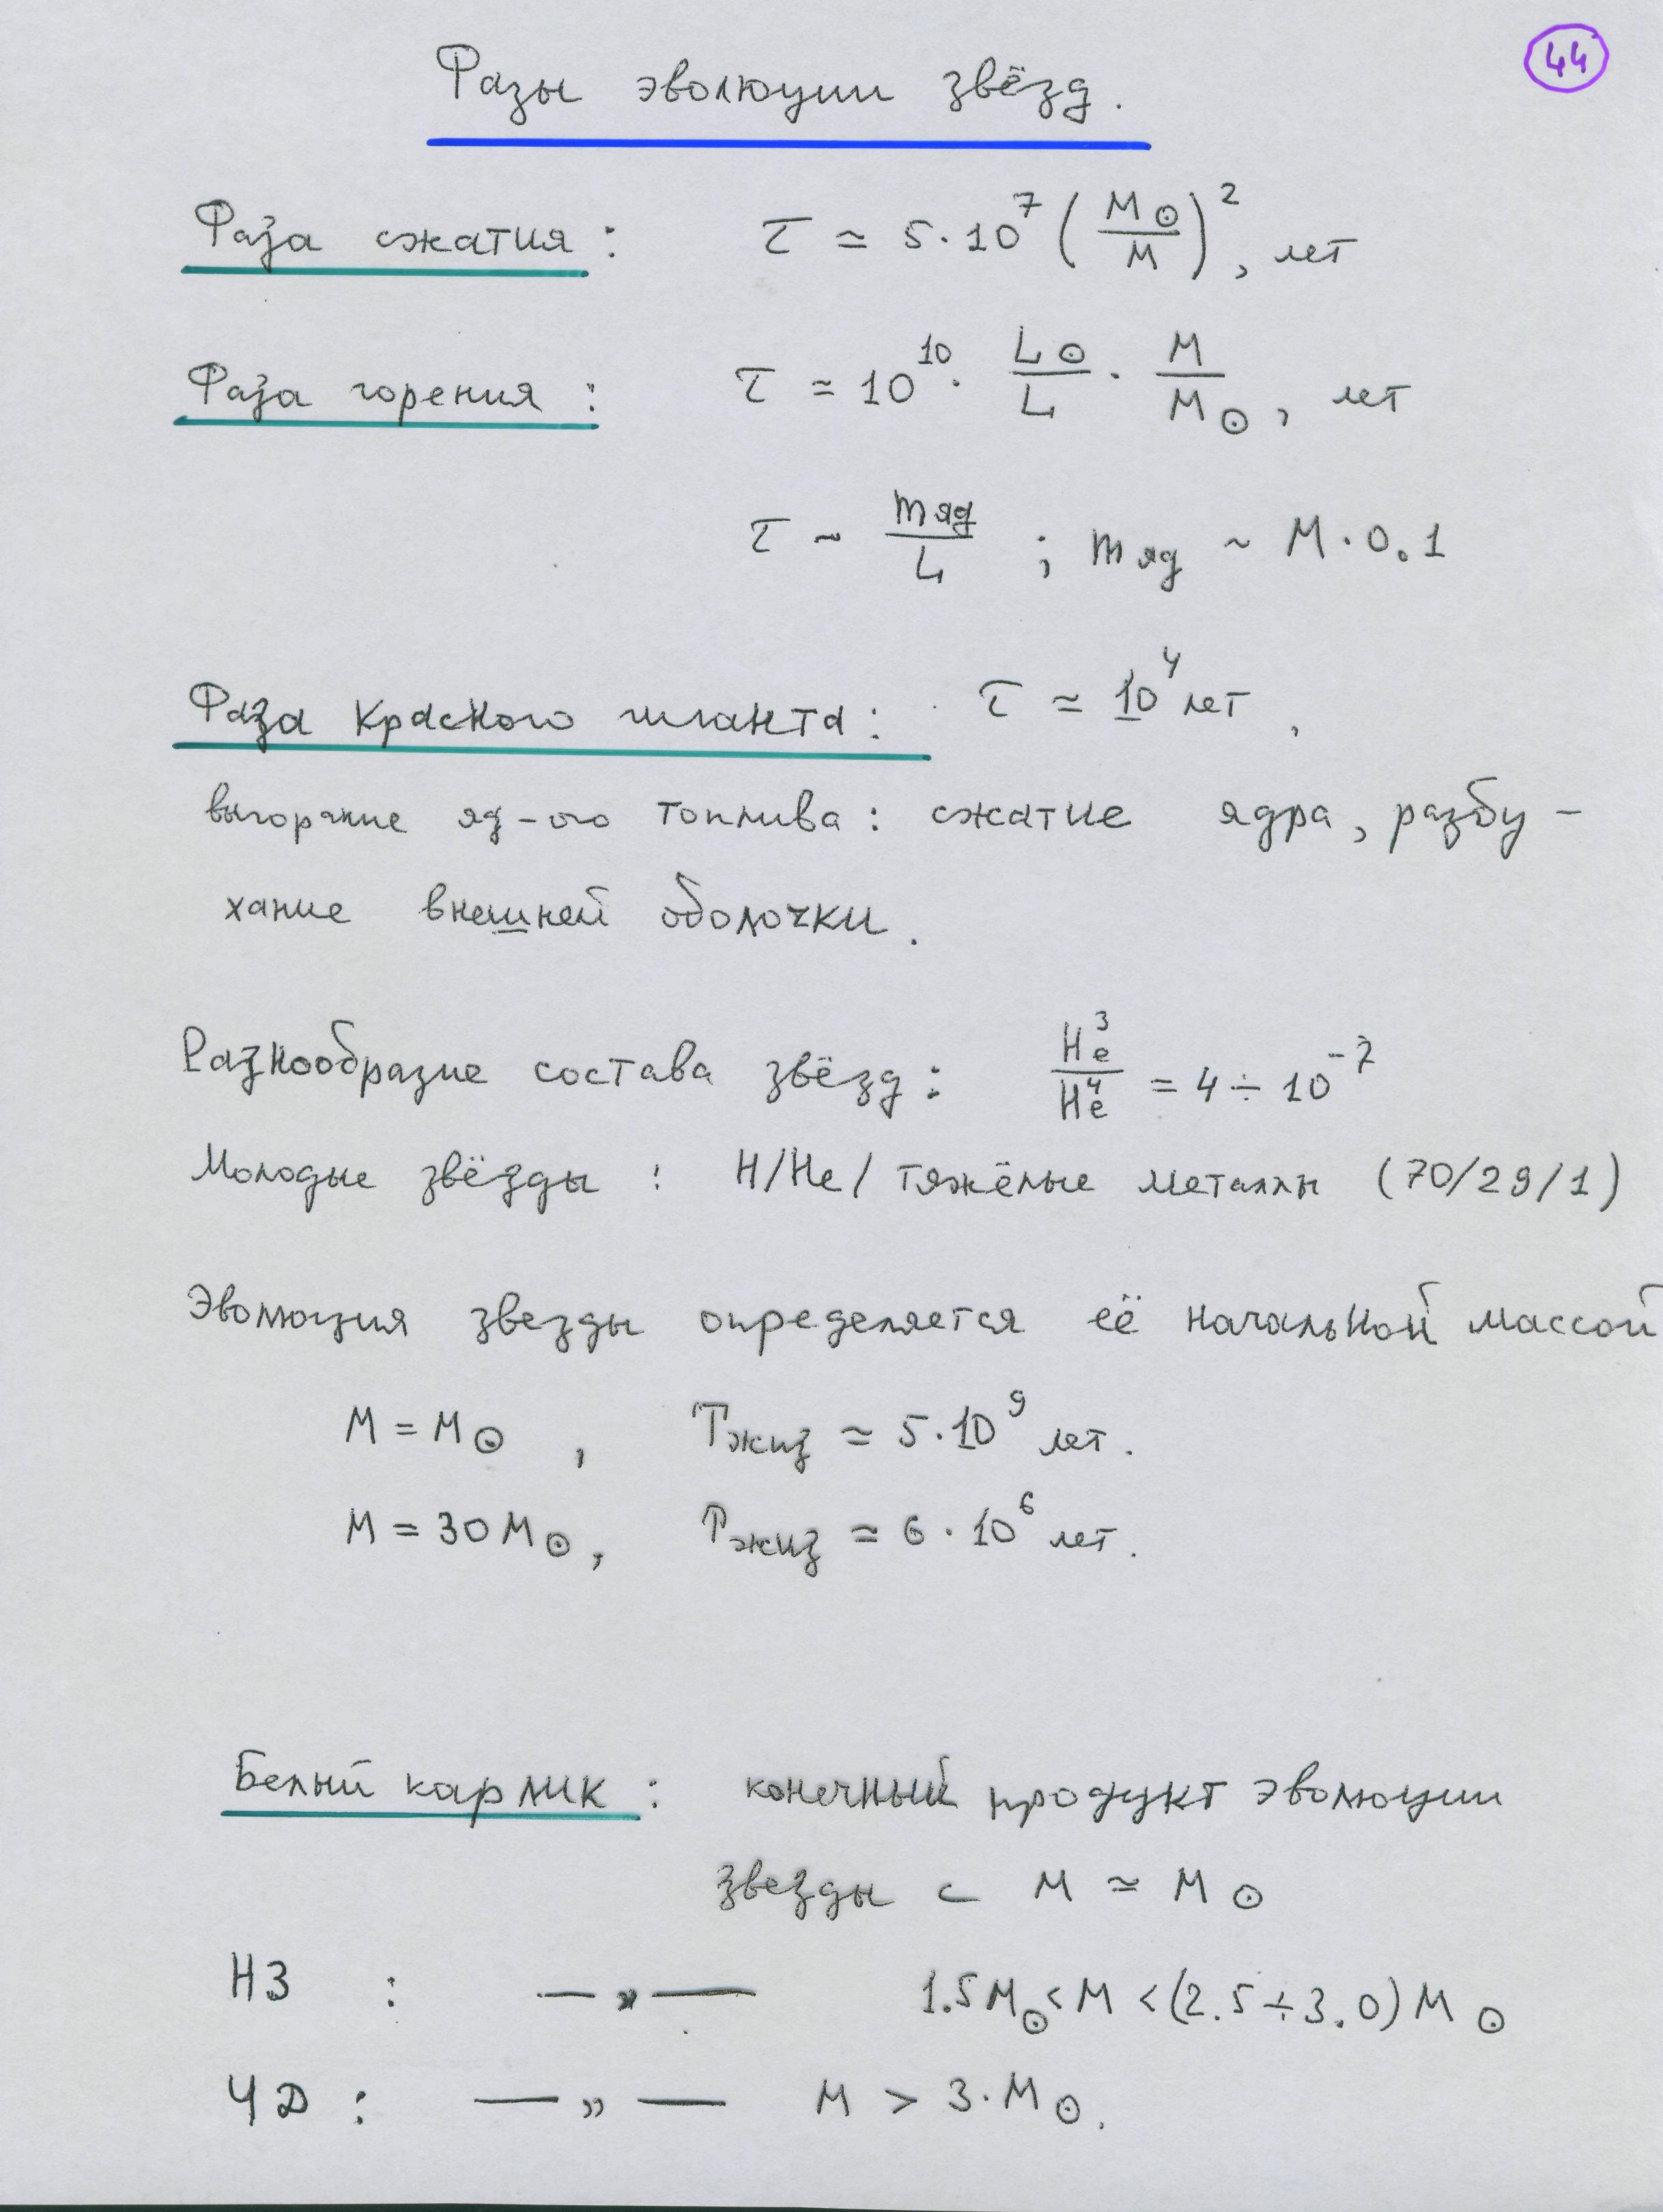 44
Фазы эволюции звёзд.
Фаза сжатия: τ ≃ 5·10⁷ (M⊙/M)², лет
Фаза горения: τ ≃ 10¹⁰· L⊙/L · M/M⊙, лет
τ ~ mяд/L ; mяд ~ M·0.1
Фаза Красного гиганта: τ ≃ 10⁴ лет,
выгорание яд-ого топлива: сжатие ядра, разбу-
хание внешней оболочки.
Разнообразие состава звёзд: He³/He⁴ = 4÷10⁻⁷
Молодые звёзды: H/He/тяжёлые металлы (70/29/1)
Эволюция звезды определяется её начальной массой
M = M⊙, Tжиз ≃ 5·10⁹ лет.
M = 30M⊙, Tжиз ≃ 6·10⁶ лет.
Белый карлик: конечный продукт эволюции
звезды с M ≃ M⊙
НЗ : —„— 1.5M⊙<M<(2.5÷3.0)M⊙
ЧД : —„— M > 3·M⊙.